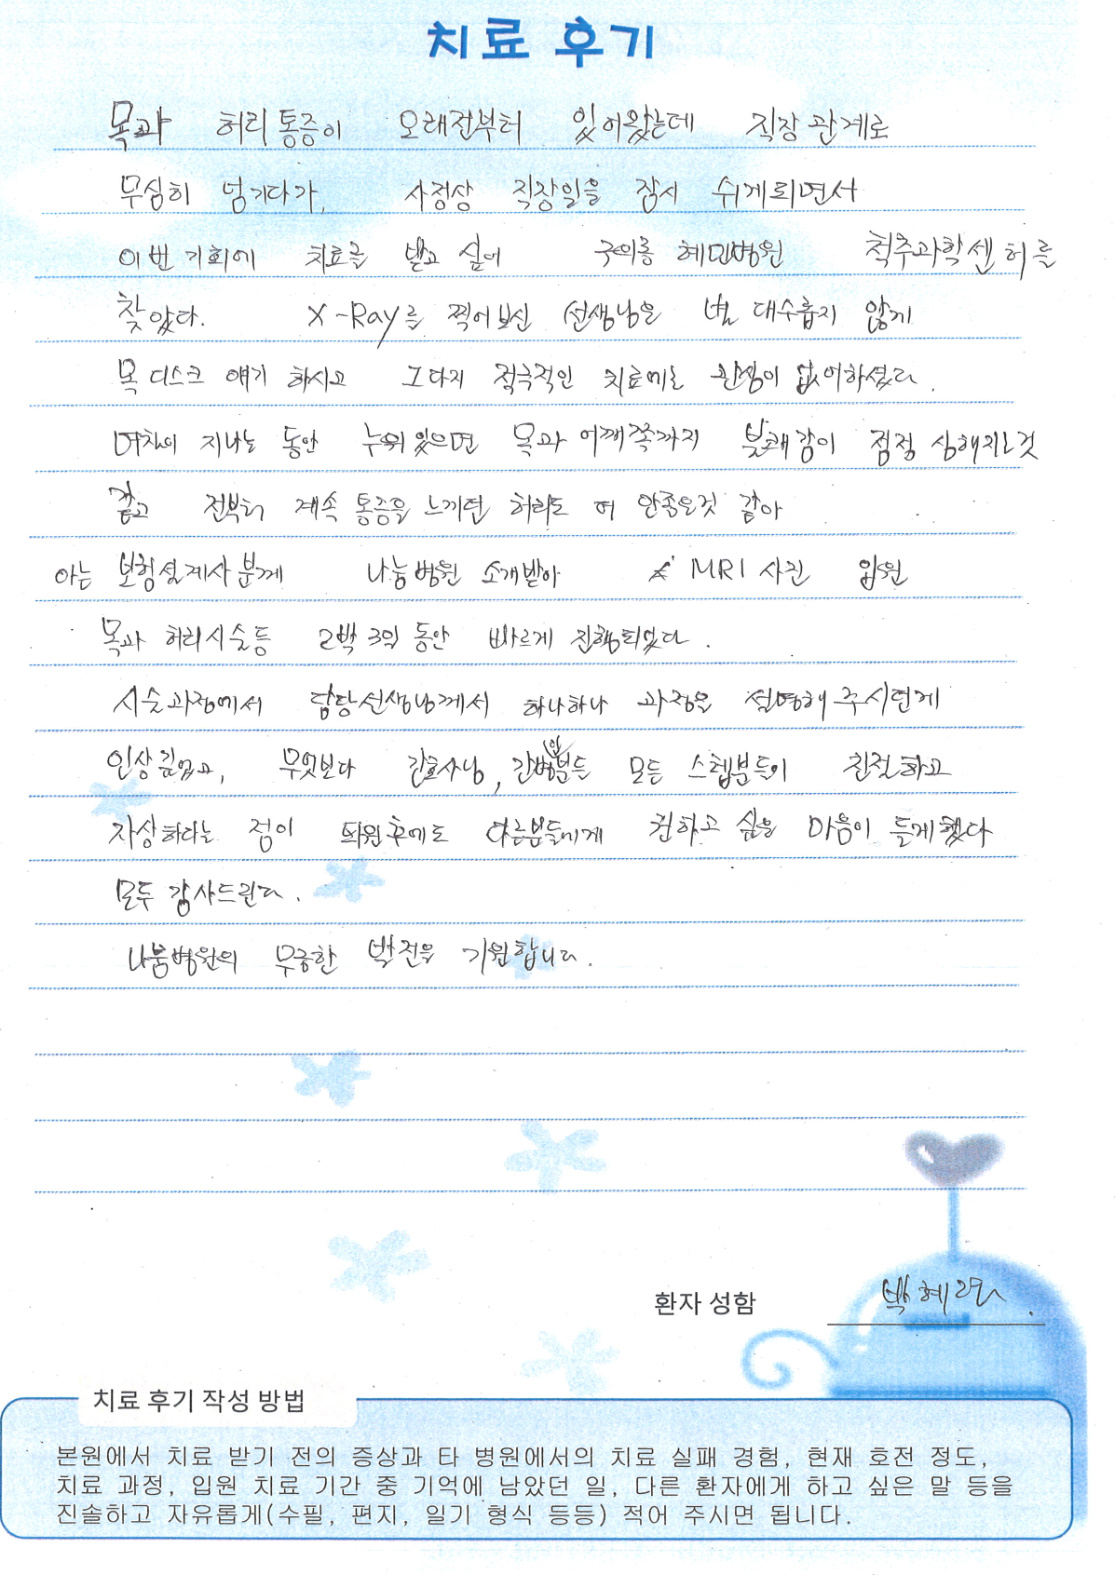 치료 후기
목과 허리통증이 오래전부터 있어왔는데 직장관계로
무심히 넘기다가, 사정상 직장일을 잠시 쉬게되면서
이번 기회에 치료를 받고 싶어 구의동 혜민병원 척추과학센허를
찾았다. X-Ray를 찍어보신 선생님은 별 대수롭지 않게
목 디스크 얘기 하시고 그다지 적극적인 치료에는 관심이 없어하셨다.
며칠이 지나는 동안 누워있으면 목과 어깨쪽까지 불쾌감이 점점 심해지는것
같고 전부터 계속 통증을 느끼던 허리도 더 안좋은것 같아
아는 보험설계사분께 나눔병원 소개받아 MRI 사진 입원
목과 허리시술등 2박3일 동안 빠르게 진행되었다.
시술과정에서 담당선생님께서 하나하나 과정을 설명해주시던게
인상깊었고, 무엇보다 간호사님, 간병인분등 모든 스텝분들이 친절하고
자상하다는 점이 퇴원후에도 다른분들에게 권하고 싶은 마음이 들게했다
모두 감사드린다.
나눔병원의 무궁한 발전을 기원합니다.
환자 성함 박혜란
치료 후기 작성 방법
본원에서 치료 받기 전의 증상과 타 병원에서의 치료 실패 경험, 현재 호전 정도,
치료 과정, 입원 치료 기간 중 기억에 남았던 일, 다른 환자에게 하고 싶은 말 등을
진솔하고 자유롭게(수필, 편지, 일기 형식 등등) 적어 주시면 됩니다.